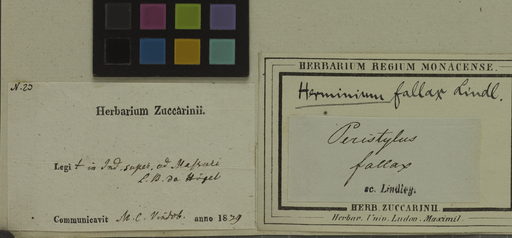 N. 23
Herbarium Zuccarinii.
Legit in Ind. super. ad Massuri
L. B. de Hügel
Communicavit M. C. Vindob. anno 1839
HERBARIUM REGIUM MONACENSE.
Herminium fallax Lindl.
Peristylus
fallax
sc. Lindley.
HERB. ZUCCARINII
Herbar. Univ. Ludov. Maximil.